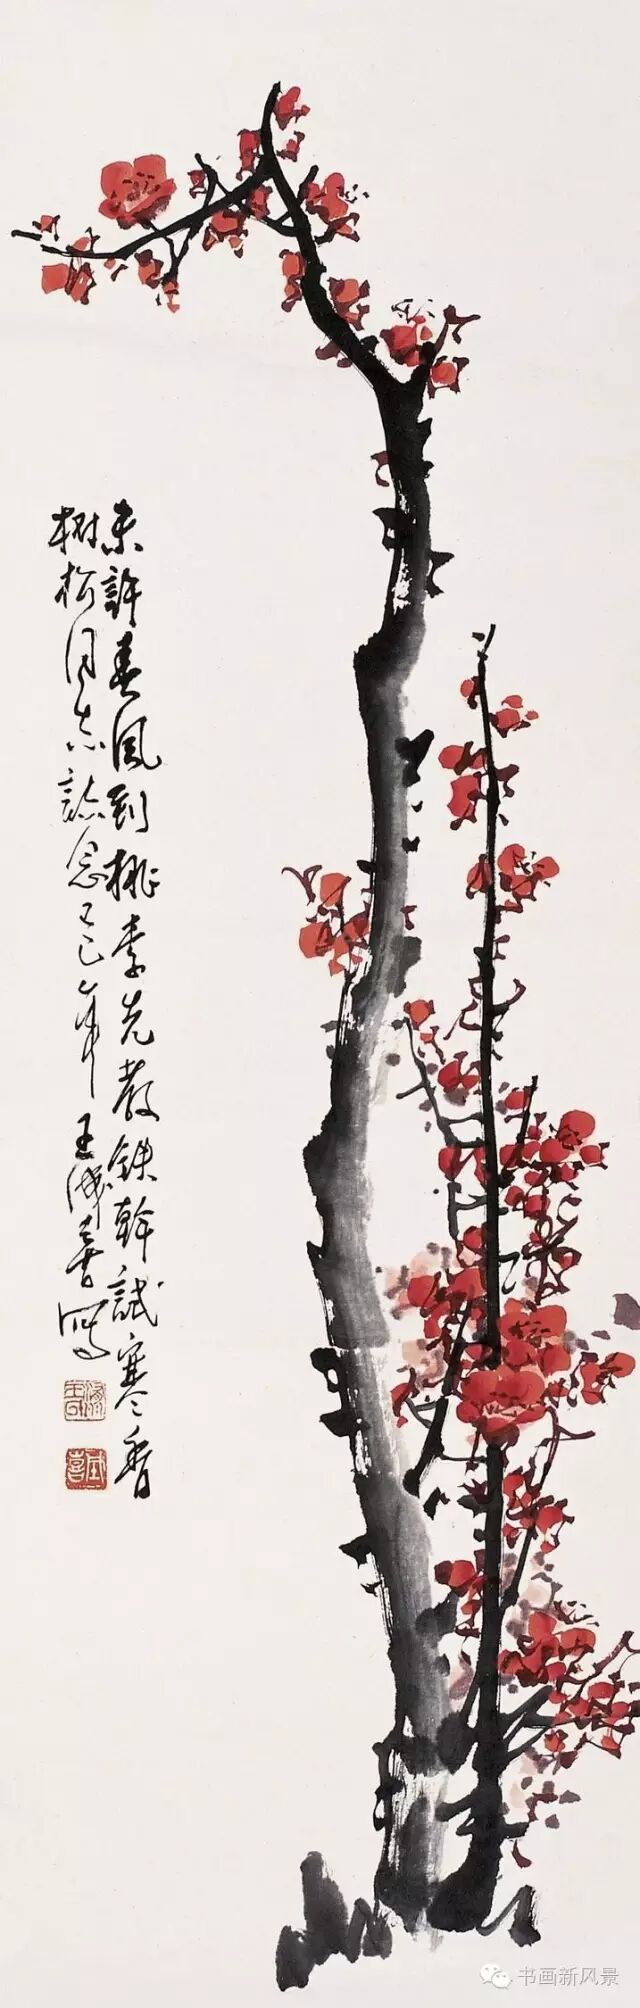 未許春風到桃李先教鉄幹試寒香
樹松同志誌念己巳年王成喜寫
书画新风景